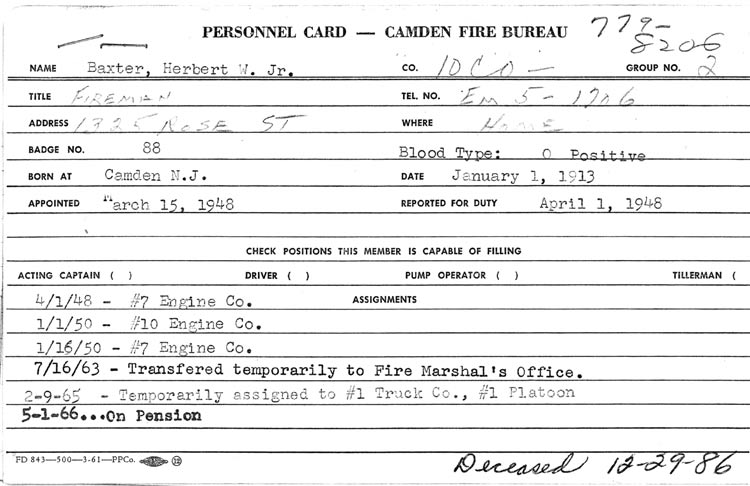 PERSONNEL CARD — CAMDEN FIRE BUREAU 779-
8206
NAME Baxter, Herbert W. Jr. CO. 10 CO- GROUP NO. 2
TITLE FIREMAN TEL. NO. Em 5-1706
ADDRESS 1325 ROSE ST WHERE Home
BADGE NO. 88 Blood Type: O Positive
BORN AT Camden N.J. DATE January 1, 1913
APPOINTED March 15, 1948 REPORTED FOR DUTY April 1, 1948
CHECK POSITIONS THIS MEMBER IS CAPABLE OF FILLING
ACTING CAPTAIN ( ) DRIVER ( ) PUMP OPERATOR ( ) TILLERMAN (
4/1/48 - #7 Engine Co. ASSIGNMENTS
1/1/50 - #10 Engine Co.
1/16/50 - #7 Engine Co.
7/16/63 - Transfered temporarily to Fire Marshal's Office.
2-9-65 - Temporarily assigned to #1 Truck Co., #1 Platoon
5-1-66...On Pension
FD 843—500—3-61—PPCo.
Deceased 12-29-86